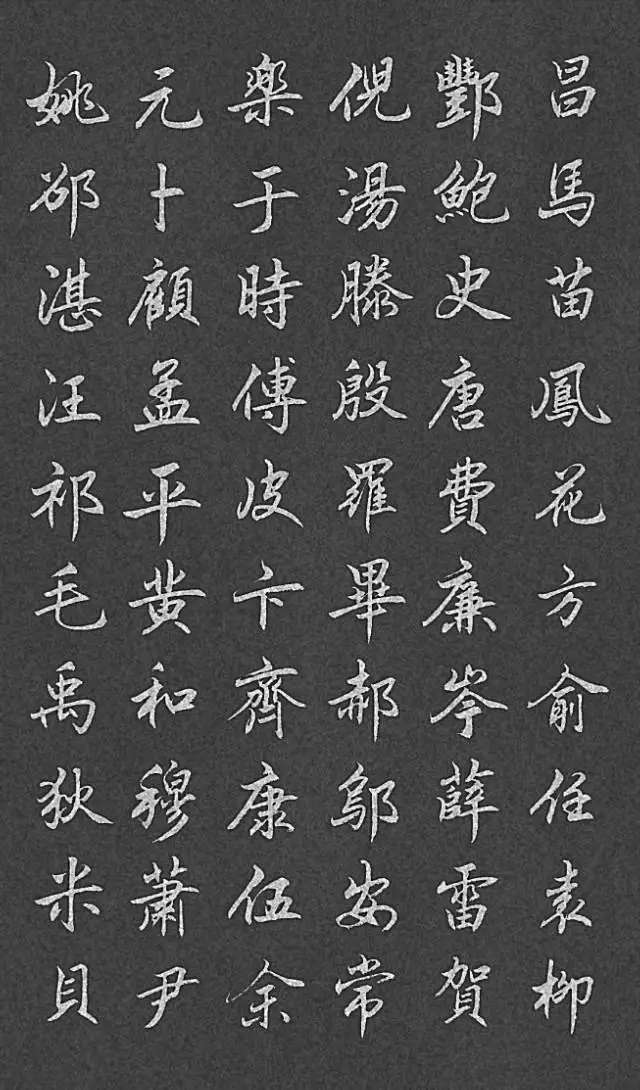 昌馬苗鳳花方俞任袁柳
酆鮑史唐費廉岑薛雷賀
倪湯滕殷羅畢郝鄔安常
樂于時傅皮卞齊康伍余
元卜顧孟平黃和穆蕭尹
姚邵湛汪祁毛禹狄米貝